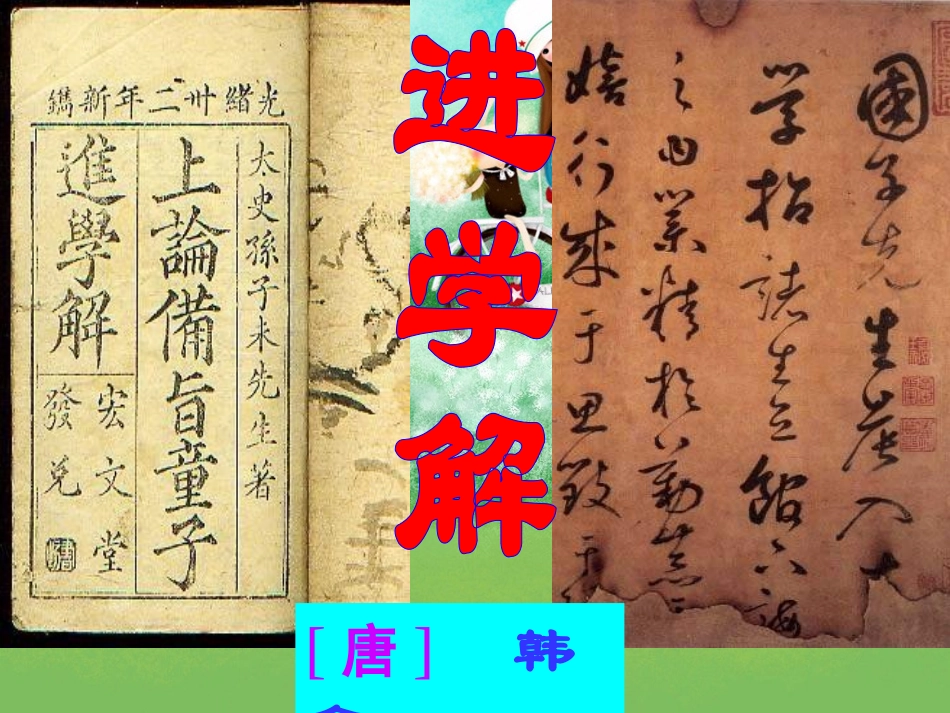 光緒卅二年新鐫
太史孫子未先生著
上論備旨童子
進學解
宏文堂
發兌
进学解
國子先生晨入大
学招諸生立館下誨
之曰業精於勤荒
嬉行成于思毀于
[唐] 韩